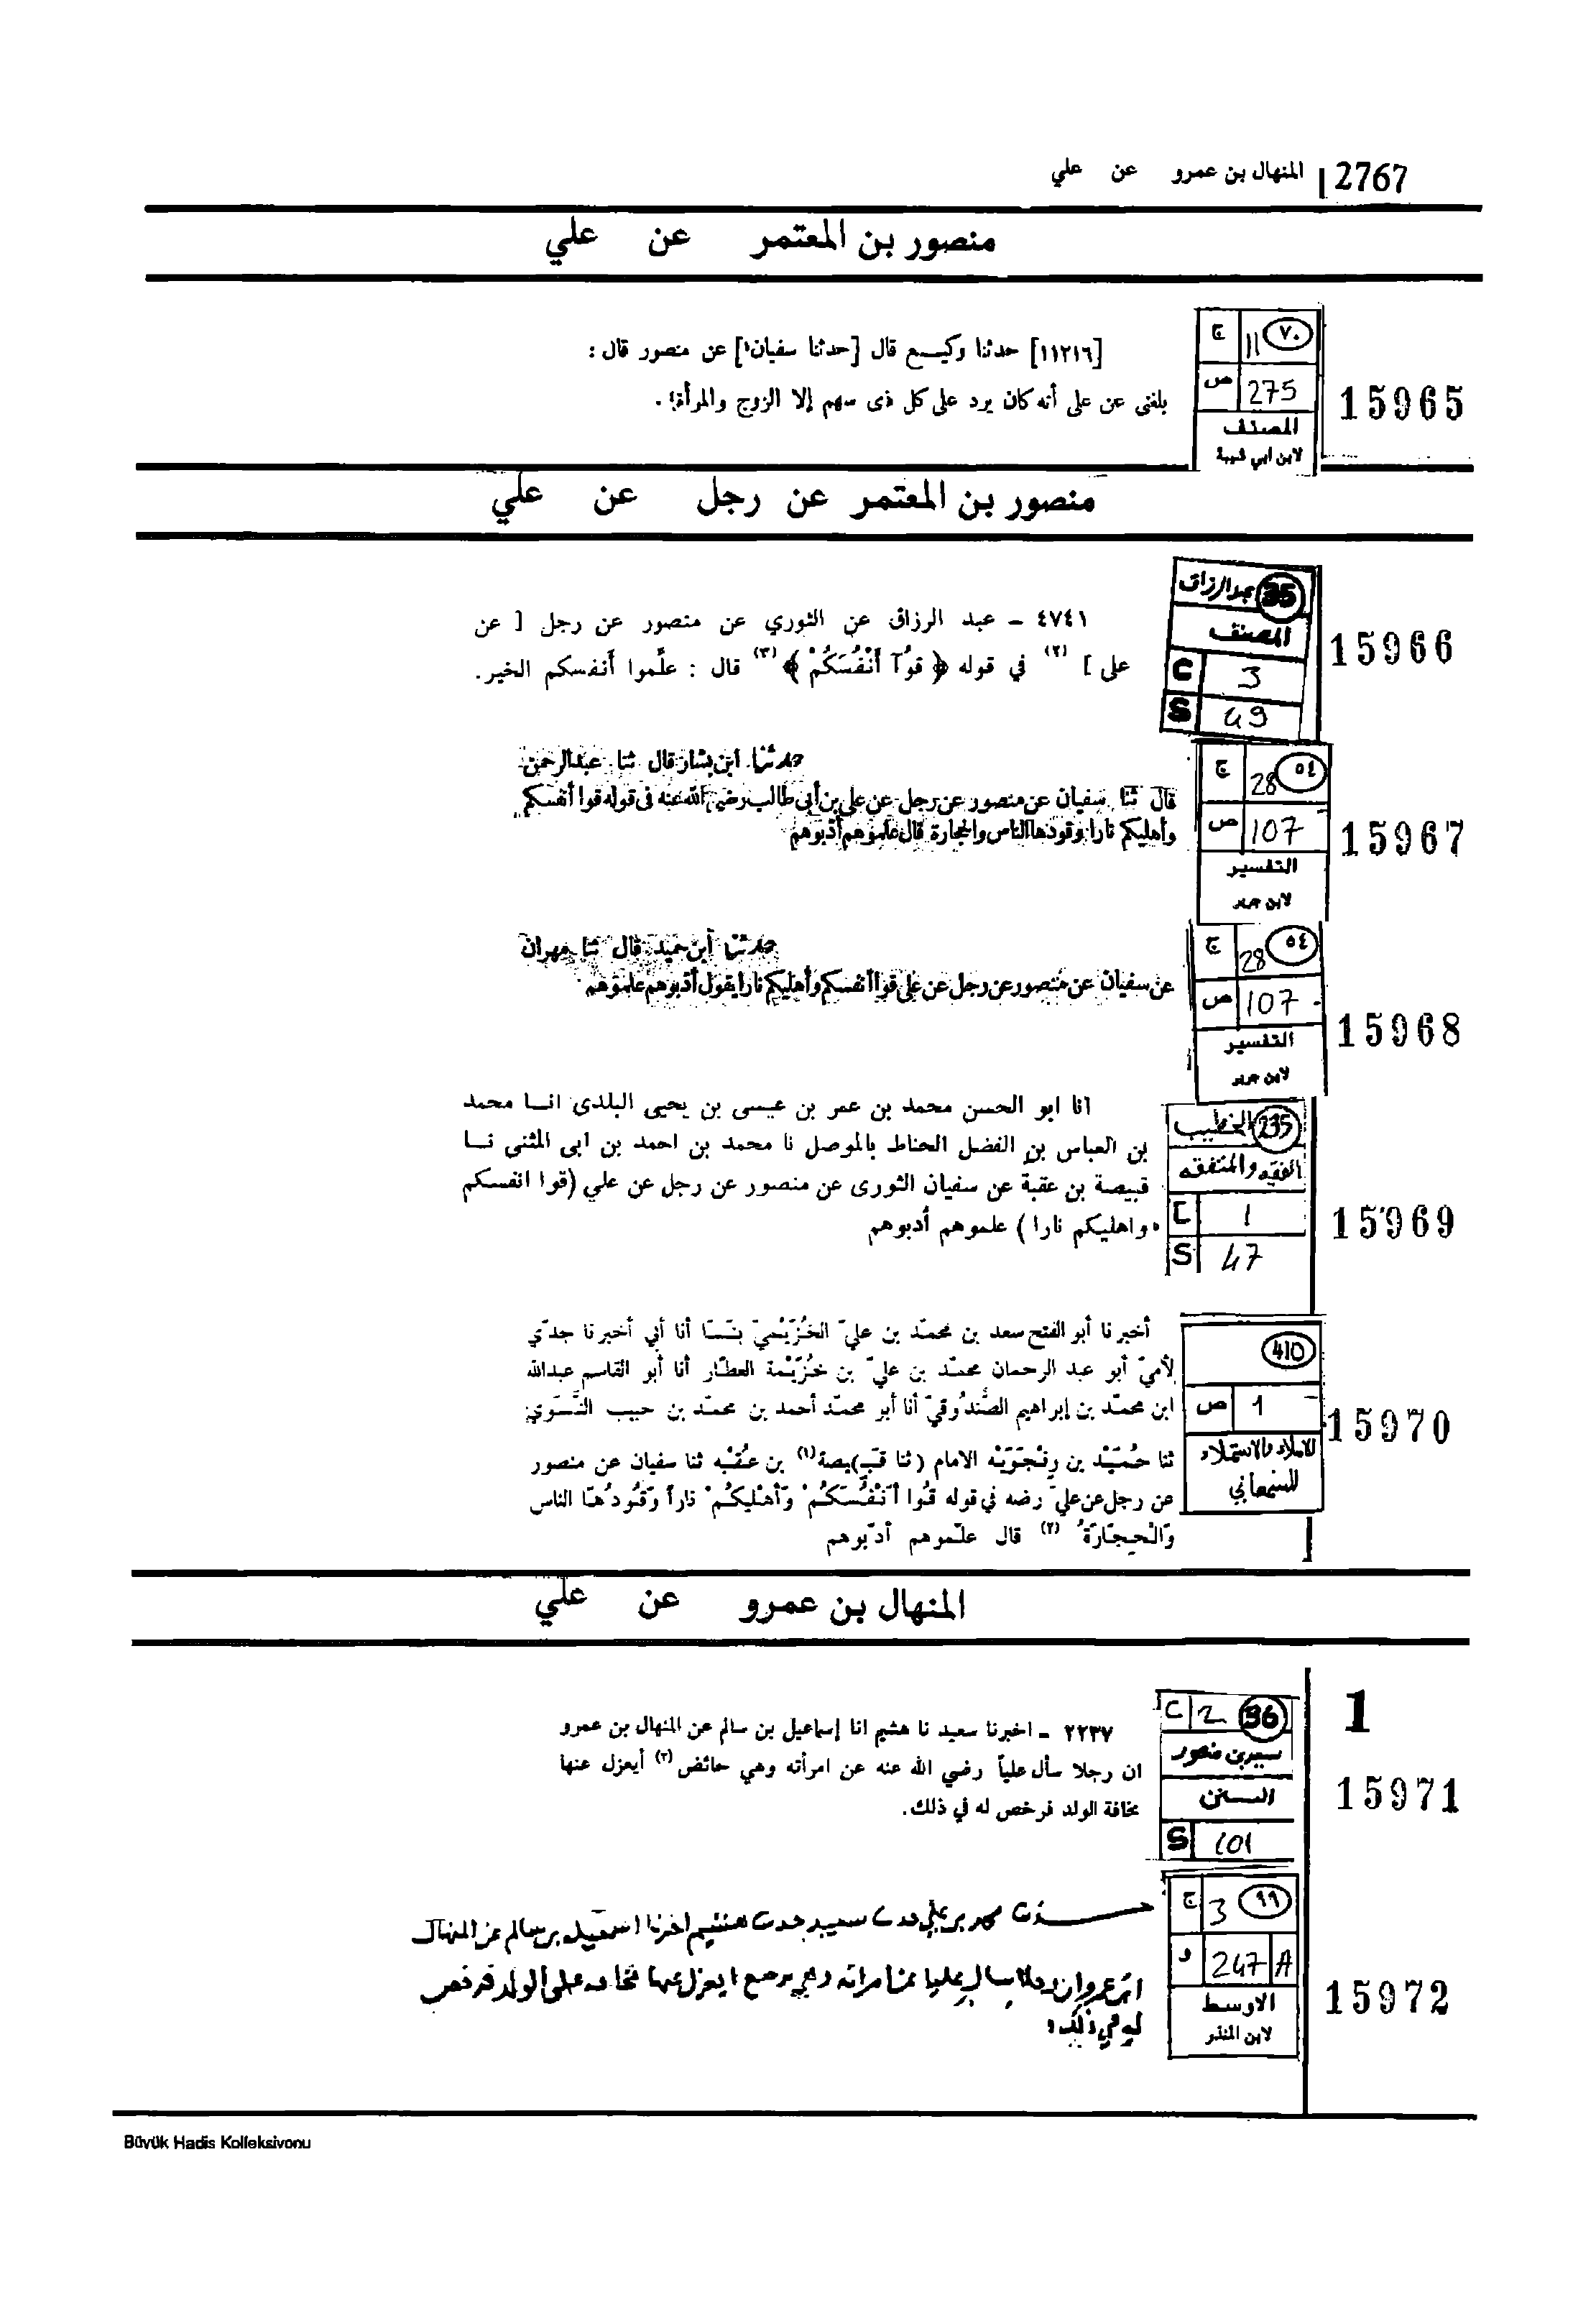 2767 المنهال بن عمرو عن علي
منصور بن المعتمر عن علي
٧٠ 11 ج
275 ص
المصنف
لابن ابي شيبة
15965
[١١٢١٦] حدثنا وكيــع قال [حدثنا سفيان'] عن منصور قال :
بلغنى عن على أنه كان يرد على كل ذى سهم إلا الزوج والمرأة .
منصور بن المعتمر عن رجل عن علي
35 عبد الرزاق
المصنف
C 3
S 49
15966
٤٧٤١ – عبد الرزاق عن الثوري عن منصور عن رجل [ عن
على ] (٢) في قوله ﴿ قُوآ أَنْفُسَكُمْ ﴾ (٣) قال : علِّموا أنفسكم الخير.
٥٤ 28 ج
107 ص
التفسير
لابن جرير
15967
حدثنا ابن بشار قال ثنا عبد الرحمن
قال ثنا سفيان عن منصور عن رجل عن علي بن أبي طالب رضي الله عنه فى قوله قوا أنفسكم
وأهليكم نارا وقودها الناس والحجارة قال علموهم أدبوهم
٥٤ 28 ج
107 ص
التفسير
لابن جرير
15968
حدثنا ابن حميد قال ثنا مهران
عن سفيان عن منصور عن رجل عن علي قوا أنفسكم وأهليكم نارا يقول أدبوهم علموهم
235 الخطيب
الفقيه والمتفقه
C 1
S 47
15969
انا ابو الحسن محمد بن عمر بن عيسى بن يحيى البلدى انــا محمد
بن العباس بن الفضل الحناط بالموصل نا محمد بن احمد بن ابى المثنى نــا
قبيصة بن عقبة عن سفيان الثورى عن منصور عن رجل عن علي (قوا انفسكم
واهليكم نارا ) علموهم أدبوهم
410
1 ص
الاملاء والاستملاء
للسمعاني
15970
أخبرنا أبو الفتح سعد بن محمّد بن عليّ الخُزَيْميّ بنَسَا أنا أبي أخبرنا جدّي
لأميّ أبو عبد الرحمان محمّد بن عليّ بن خُزَيْمة العطّار أنا أبو القاسم عبدالله
ابن محمّد بن إبراهيم الصُّندُوقيّ أنا أبو محمّد أحمد بن محمّد بن حبيب النَّسَوي
ثنا حُمَيْد بن زنْجَوَيْه الامام (ثنا قَبِ)يصة(١) بن عُقبْه ثنا سفيان عن منصور
عن رجل عن عليّ رضه في قوله قُوا أَنْفُسَكُمْ وَأهْليكُمْ ناراً وَقُودُهَا الناس
وَالْحِجَارَةُ (٢) قال علّموهم أدّبوهم
المنهال بن عمرو عن علي
1
36 2 C
سعيد بن منصور
السنن
S 101
15971
٢٢٣٧ ـ اخبرنا سعيد نا هشيم انا إسماعيل بن سالم عن المنهال بن عمرو
ان رجلا سأل علياً رضي الله عنه عن امرأته وهي حائض (٢) أيعزل عنها
مخافة الولد فرخص له في ذلك.
٩٩ 3 ج
A 247 و
الاوسط
لابن المنذر
15972
محمد بن علي حدثنا سعيد حدثنا هشيم اخبرنا اسمعيل بن سالم عن المنهال
ابن عمرو ان رجلا سال عليا عن امراته وهي ترضع ايعزل عنها مخافة على الولد فرخص
له في ذلك
Büyük Hadis Kolleksiyonu